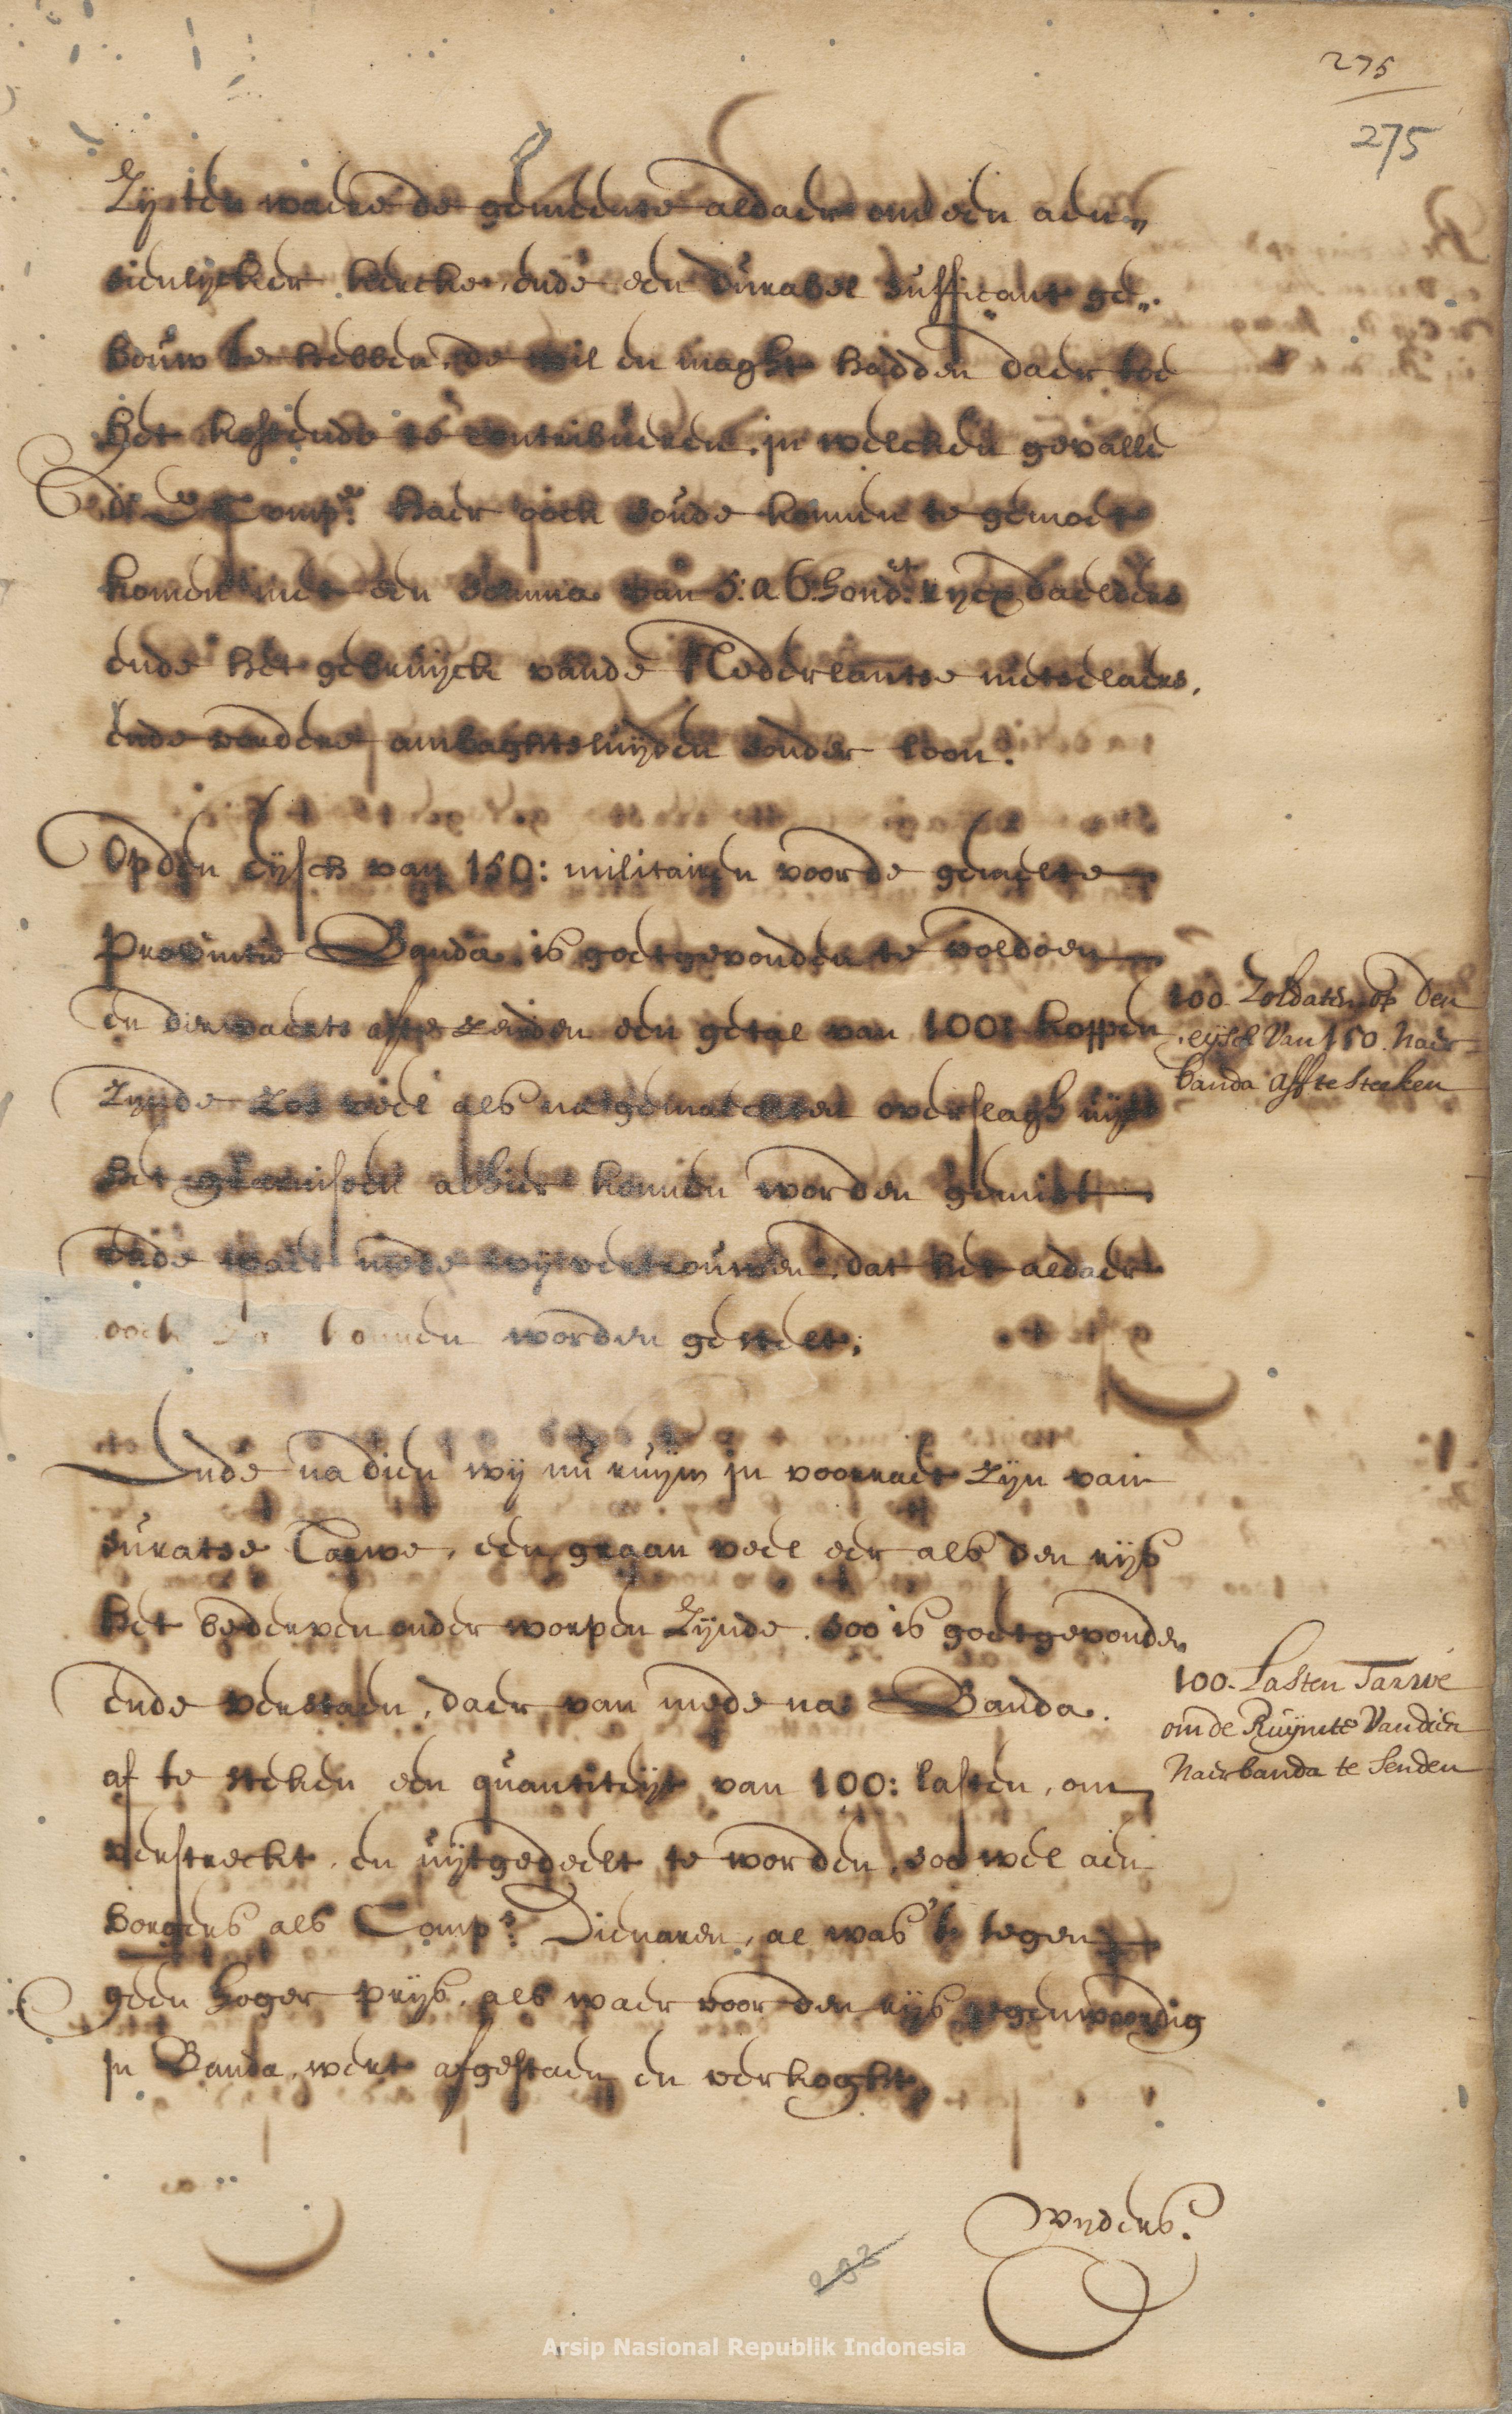 275
275
Zij ten waere de gemeente aldaer om een aen„
sienlijcker kercke, ende een durabel sufficant ge„
bouw te hebben, de wil en maght hadden daer toe
het kostende te contribueren, in welcken gevalle
de E Comp.e haer oock soude konnen te gemoet
komen met een somma van 5: a 6: hond.t rijcxdaelders
ende het gebruijck vande Nederlantse metselaers,
ende verdere ambaghtsluijden sonder loon.
Op den eijsch van 150: militairen voor de gemelte
Provintie Banda, is goetgevonden te voldoen
en derwaerts af te zenden een getal van 100: koppen
zijnde zoo veel als na gemaeckten overslagh uijt
het guarnisoen alhier konnen worden gemist
ende waer mede wij vertrouwen, dat het aldaer
oock konnen worden gestelt;
100 Zoldaten op den
eijsch Van 150 Naer
banda aff te steeken
Ende na dien wij nu ruijm in voorraet zijn van
suratse Tarwe, een graan veel eer als den rijs
het bederven onder worpen zijnde, soo is goetgevonden
ende verstaen, daer van mede na Banda
af te steken een quantiteijt van 100: lasten, om
verstreckt, en uijtgedeelt te worden, soo wel aen
borgers als Comp.s Dienaren, al was 't tegen
geen hoger prijs, als waer voor den rijs tegenwoordig
in Banda, wert afgestaen en verkoght,
100. Lasten Tarwe
om de Ruijmte Van dien
Naer banda te senden
Wijders.
Arsip Nasional Republik Indonesia